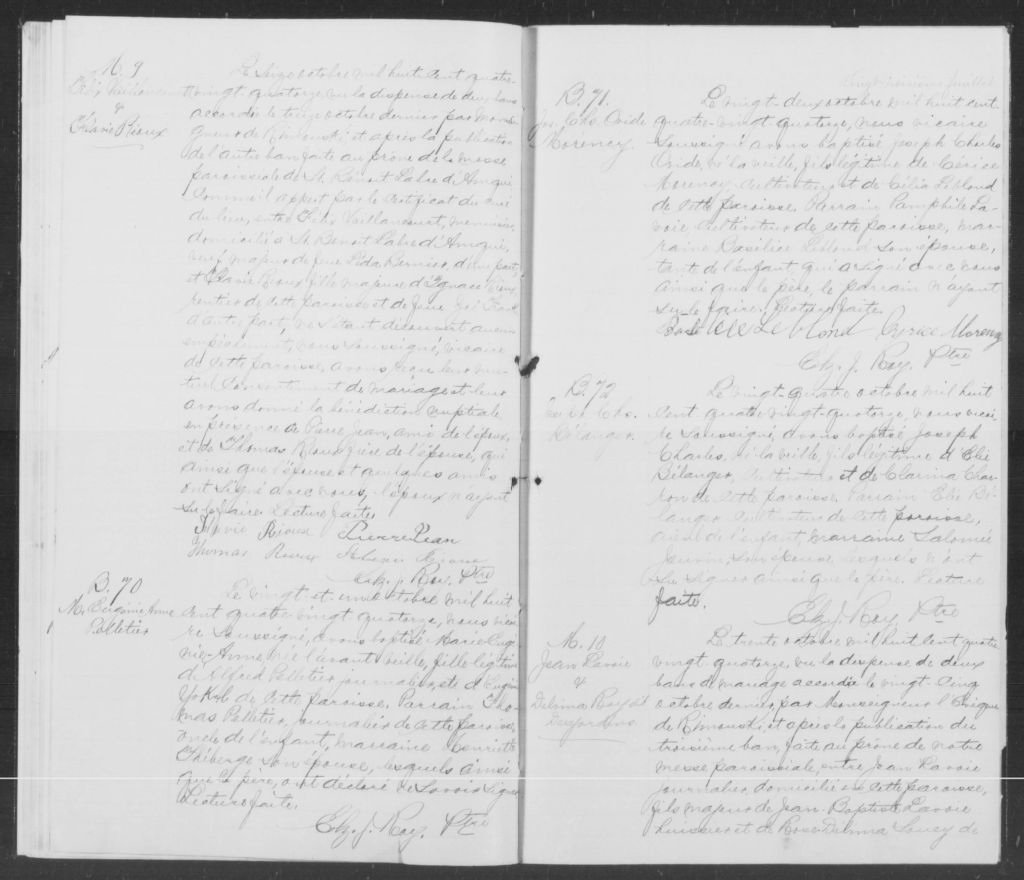 M. 9
Félix Vaillancourt
&
Flavie Rioux
Le seize octobre mil huit cent quatre-
vingt quatorze, vu la dispense de deux bans
accordée le treize octobre dernier par Monsei-
gneur de Rimouski et après la publication
de l'autre ban faite au prône de la messe
paroissiale de St Benoit Labre d'Amqui
comme il appert par le certificat du curé
du lieu, entre Félix Vaillancourt, menuisier,
domicilié à St Benoit Labre d'Amqui,
veuf majeur de feue Léda Bernier, d'une part,
et Flavie Rioux fille majeure d'Ignace Rioux
rentier de cette paroisse et de feue
d'autre part, ne s'étant découvert aucun
empêchement, nous soussigné, vicaire
de cette paroisse, avons reçu leur mu-
tuel consentement de mariage et leur
avons donné la bénédiction nuptiale
en présence de Pierre Jean, ami de l'époux,
et de Thomas Rioux frère de l'épouse, qui
ainsi que l'épouse et quelques amis
ont signé avec nous, l'époux n'ayant
su le faire. Lecture faite.
Flavie Rioux Pierre Jean
Thomas Rioux
Chs. J. Roy, Ptre
B. 70
M. Eugénie Anne
Pelletier
Le vingt-et-un octobre mil huit
cent quatre-vingt quatorze, nous vicai-
re soussigné, avons baptisé Marie Eugé-
nie-Anne, née l'avant veille, fille légitime
d'Alfred Pelletier, journalier, et d'Eugénie
de cette paroisse. Parrain Tho-
mas Pelletier, journalier de cette paroisse,
oncle de l'enfant, marraine Henriette
Théberge son épouse, lesquels ainsi
que le père, ont déclaré ne savoir signer.
Lecture faite.
Chs. J. Roy, Ptre
B. 71.
Jos. Chs. Ovide
Morency
Le vingt-deux octobre mil huit cent
quatre-vingt quatorze, nous vicaire
soussigné avons baptisé Joseph Charles
Ovide, né la veille, fils légitime de Cyrice
Morency cultivateur et de Célia Leblond
de cette paroisse. Parrain Pamphile La-
voie cultivateur de cette paroisse, mar-
raine Basilice Leblond son épouse,
tante de l'enfant, qui a signé avec nous
ainsi que le père, le parrain n'ayant
su le faire. Lecture faite.
Basilice Leblond Cyrice Morency
Chs. J. Roy, Ptre
B. 72
Joseph Chs.
Bélanger
Le vingt-quatre octobre mil huit
cent quatre-vingt-quatorze, nous vicai-
re soussigné, avons baptisé Joseph
Charles, né la veille, fils légitime d'Elie
Bélanger, cultivateur et de Clarina Cha-
ron de cette paroisse. Parrain Elie Bé-
langer cultivateur de cette paroisse,
aïeul de l'enfant, marraine Salomée
son épouse, lesquels n'ont
su signer ainsi que le père. Lecture
faite.
Chs. J. Roy, Ptre
M. 10
Jean Lavoie
&
Delima Roy dit
Desjardins
Le trente octobre mil huit cent quatre
vingt-quatorze, vu la dispense de deux
bans de mariage accordée le vingt-cinq
octobre dernier, par Monseigneur l'Evêque
de Rimouski, et après la publication du
troisième ban, faite au prône de notre
messe paroissiale, entre Jean Lavoie
journalier, domicilié en cette paroisse,
fils majeur de Jean-Baptiste Lavoie
huissier et de Rose-Delima Soucy de